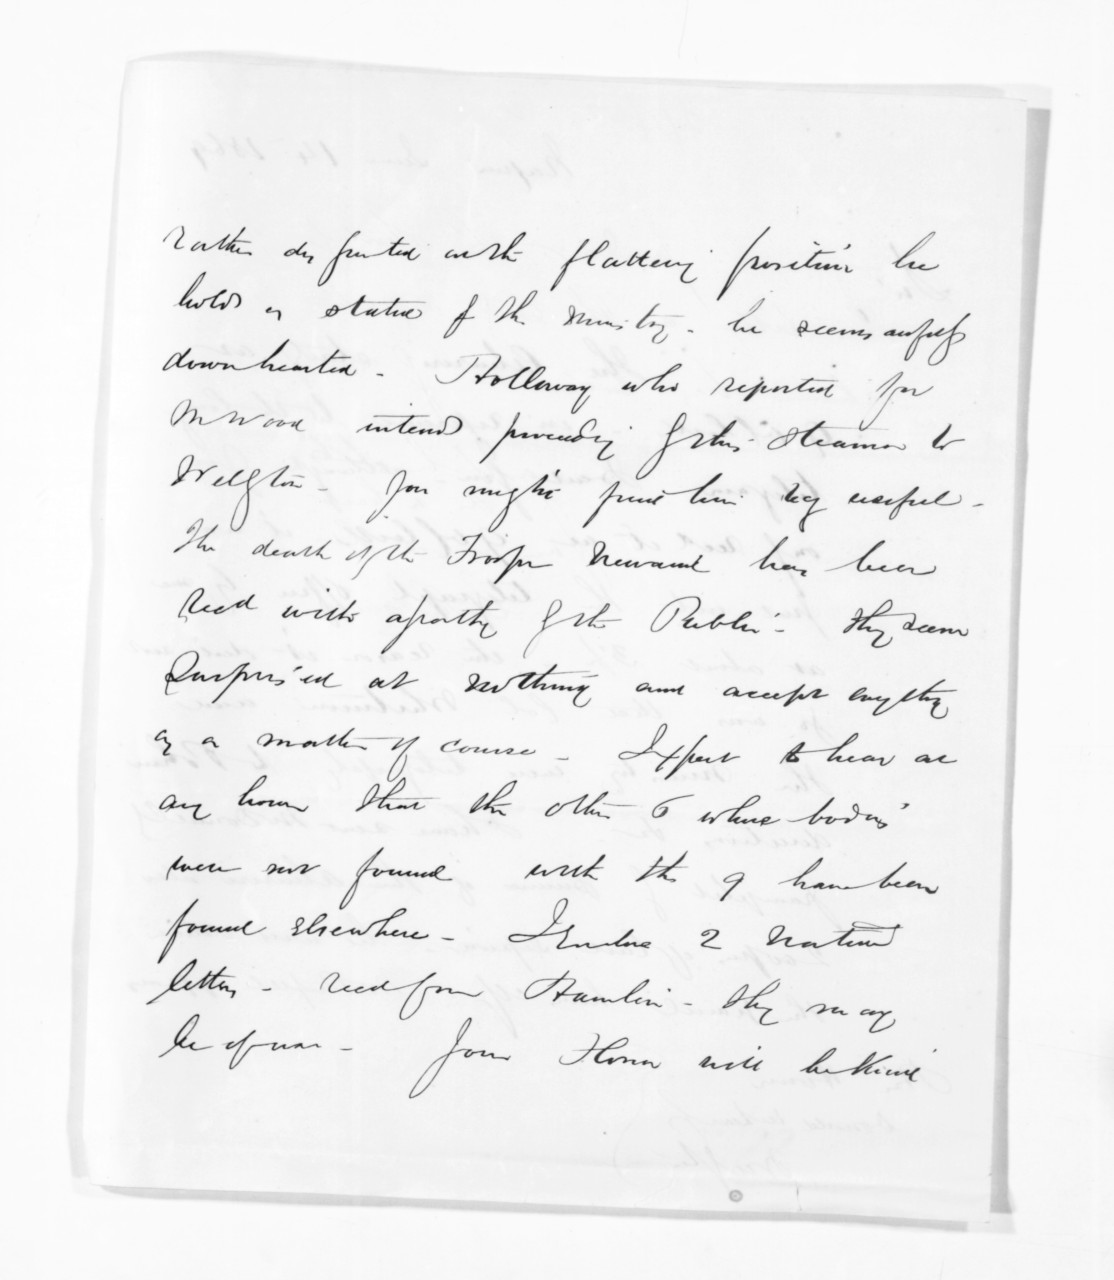 rather disgusted with flattering position he
holds as status of the Ministry - he seems awfully
downhearted - Holloway who reported for
McWood intends proceeding by this steamer to
Welgton - you might find him very useful -
The death of the Trooper has been
recd with apathy by the Public - they seem
surprised at nothing and accept anything
as a matter of course - I expect to hear at
any hour that the other 6 whose bodies
were not found with the 9 have been
found elsewhere - I enclose 2 native
letters - recd from Hamlin - they may
be of use - Your Honor will be kind